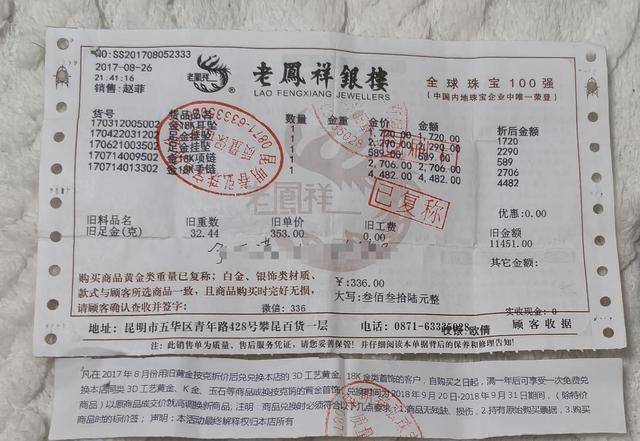 NO:SS201708052333
2017-08-26
21:41:16
销售:赵菲
老鳳祥
®
老鳳祥銀樓
LAO FENGXIANG JEWELLERS
全球珠宝100强
(中国内地珠宝企业中唯一荣登)
货号 货品品名 数量 金重 金价 金额 折后金额
170312005002 金18K耳坠 1 1,720.00 1,720.00 1720
170422031202 足金挂坠 1 2,290.00 2,290.00 2290
170621003502 足金挂坠 1 589.00 589.00 589
170714009502 金18K项链 1 2,706.00 2,706.00 2706
170714013302 金18K手链 1 4,482.00 4,482.00 4482
0871-6333
质量保
已复称
老鳳祥
优惠:0.00
旧料品名 旧重数 旧单价 旧工费 旧金额
旧足金(克) 32.44 353.00 0.00 11451.00
其它金额:
购买商品黄金类重量已复称;白金、银饰类材质、
款式与顾客所选商品一致,且商品购买时完好无损,
请顾客确认查收并签字: 微信:336
¥:336.00
大写:叁佰叁拾陆元整
实收现金:0
地址:昆明市五华区青年路428号攀昆百货一层 电话:0871-63335028 收银:欧倩 顾客收据
商品为质量、售后服务凭证,请您妥善保管!并仔细阅读本据背后的保养和修理常识。
凡在2017年8月份用旧黄金按克折价后兑换本店的3D工艺黄金、18K金类首饰的客户,自购买之日起,满一年后可享受一次免费兑
换本店同类3D工艺黄金、K金、玉石等商品或换按克销的黄金首饰,兑换时间为2018年9月20日-2018年9月31日期间,(除特价
商品)以原商品成交价就高调换新商品,注明:商品兑换时必须符合以下几点要求:1.商品无残缺、损伤;2.持有原始购买票据;3.购买
商品时的标价签;声明:本活动最终解释权归本店所有